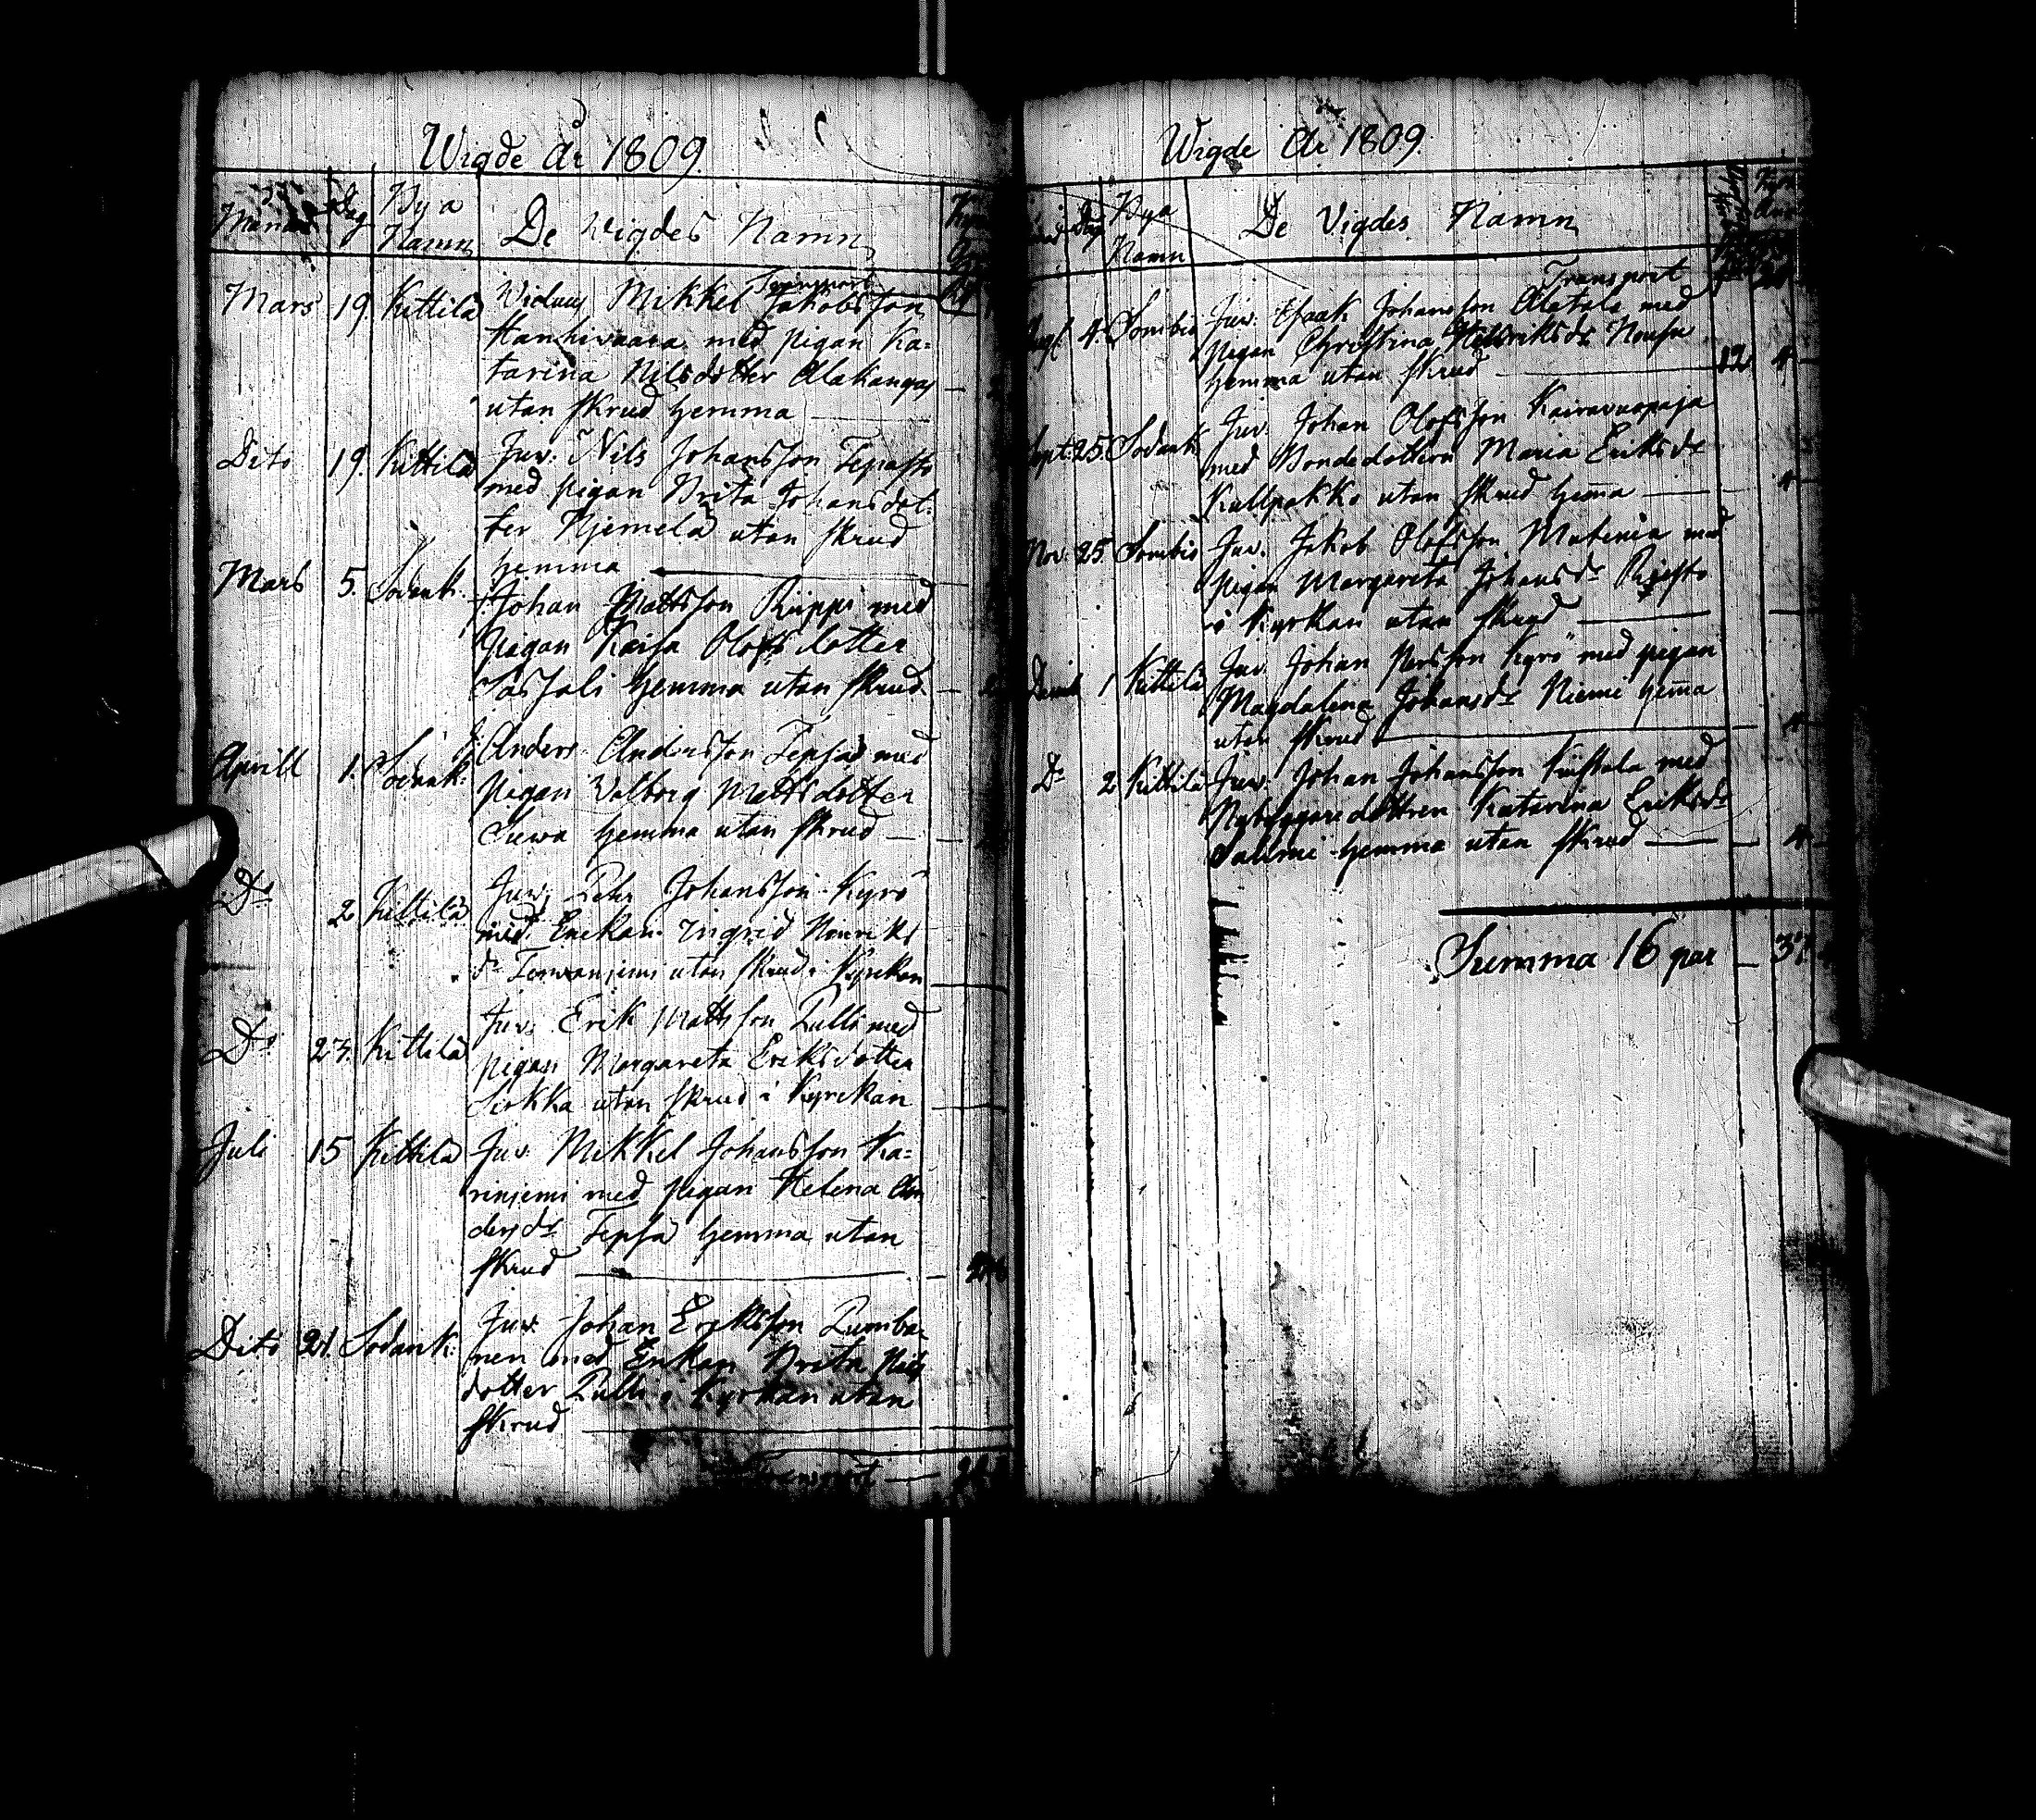 Wigde År 1809.
Dag Bya
Namn De Wigdes Namn
Transport
Mars 19. Kittilä Mikkel Jakobsson
Hanhivaara med pigan Ka=
tarina Nilsdotter Alakangas
utan skrud hemma
Dito 19. Kittilä Juv. Nils Johansson Tepasto
med pigan Brita Johansdot=
ter Njemelä utan skrud
hemma
Mars 5. Sodank. J. Johan Mattsson Riippi med
pigan Kaisa Olofsdotter
Sassali hemma utan skrud
Aprill 1. Sodank. J. Anders Andersson Tepsa med
pigan Walborg Mattsdotter
hemma utan skrud
Do 2 Kittilä Juv. Pehr Johansson Kyrö
med Enckan Ingrid Henriks
dr utan skrud i Kyrckan
Do 23. Kittilä Juv. Erik Mattsson Pulli med
pigan Margareta Eriksdotter
Sirkka utan skrud i Kyrckan
Juli 15 Kittilä Juv. Mikkel Johansson Ka=
rinjemi med pigan Helena An
dersdr Tepsa hemma utan
skrud
Dito 21. Sodank. Juv. Johan Eriksson Pumba=
nen med Enkan Brita Nils
dotter Pulli i Kyrkan utan
skrud
Transport
Wigde År 1809.
Dag Bya
Namn De Vigdes Namn
Transport
4. Sombio Juv. Isaak Johansson Alatalo med
pigan Christina Henriksdr
hemma utan skrud 12 4
Sept. 25. Sodank. Juv. Johan Olofsson
med Bondedottern Maria Eriksdr
utan skrud hemma 4
Nov. 25 Sombio Juv. Jakob Olofsson med
pigan Margareta Johansdr
i Kyrkan utan skrud
1 Kittilä Juv. Johan Persson Kyrö med pigan
Magdalena Johansdr Niemi hemma
utan skrud 4
Do 2 Kittilä Juv. Johan Johansson med
Nybyggaredottren Katarina Eriksdr
Salmi hemma utan skrud 4
Summa 16 par